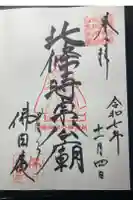 奉拝
北條時宗公廟
令和七年
十一月四日
佛日庵